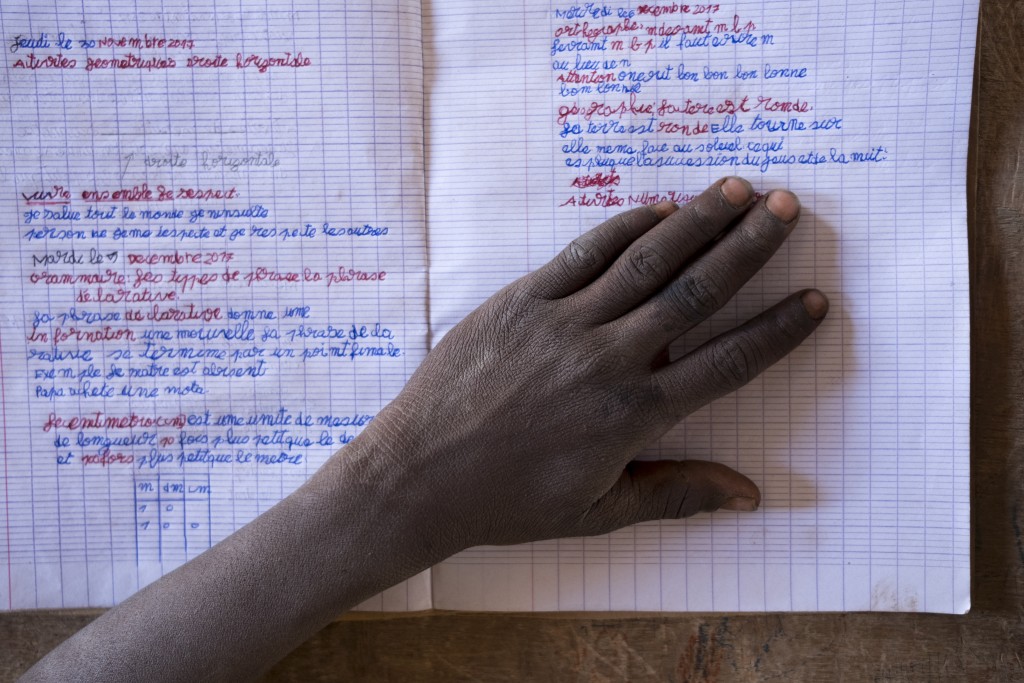 Jeudi le 30 Novembre 2017
Ativites Geometriques droite horizontale
droite horizontale
vivre ensemble Le respect.
Je salue tout le monde Je ninsulte
person ne Je me respecte et Je respecte les autres
Mardi le 5 Decembre 2017
Grammaire: Les types de phrase La phrase
de larative.
La phrase de clarative domne une
in formation une mouvelle La phrase de cla
rative se termime par un poimt fimale.
Exemple Le maitre est absent
Papa achete une moto.
Le centimetre (cm) est ume umite de
de lomgueur 10 fois plus petit que le
et 100 fois plus petit que le metre
m dm cm
1 0
1 0 0
Mercredi le 6 Decembre 2017
orthographe: m devant m b p
Devamt m b p il faut ecrire m
au lieu de n
Attention on ecrit bon bon bon bonne
bom bonne
geographie: La terre est romde.
La terre est ronde Elle tourne sur
elle meme face au soleil ce qui
explique la sucession du jour et de la nuit.
Ativites Numerique